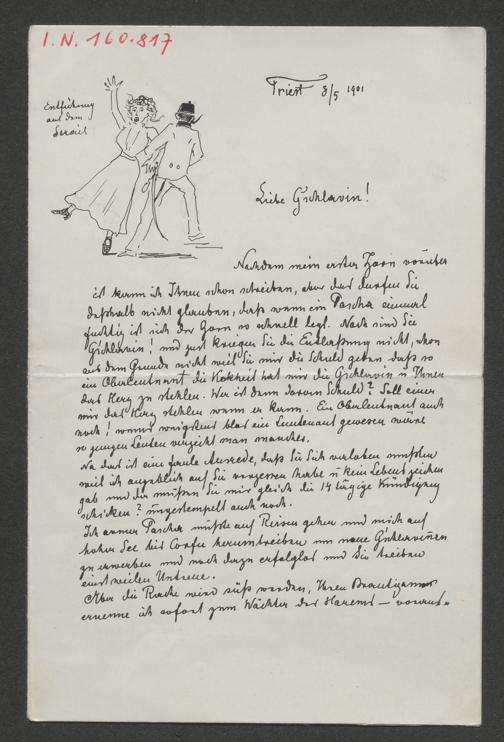 I.N. 160.817
Triest 8/5 1901
Entführung
aus dem
Serail
Liebe Gschlavin!
Nachdem mein erster Zorn vorüber
ist kann ich Ihnen schon schreiben, aber das dürfen Sie
deßhalb nicht glauben, daß wenn ein Pascha einmal
fuchtig ist sich der Zorn so schnell legt. Noch sind Sie
Gschlavin! und just kriegen Sie die Entlassung nicht, schon
aus dem Grunde nicht weil Sie mir die Schuld geben daß so
ein Oberleutnant die Keckheit hat mir die Gschlavin u Ihnen
das Herz zu stehlen. Wer ist denn daran Schuld? Soll einer
mir das Herz stehlen wenn er kann. Ein Oberleutnant auch
noch! wenns wenigstens blos ein Lieutenant gewesen wäre
so jungen Leuten verzeiht man manches.
Na das ist eine faule Ausrede, daß Sie Sich verloben mußten
weil ich angeblich auf Sie vergessen habe u kein Lebenszeichen
gab und da müssen Sie mir gleich die 14 tägige Kündigung
schicken? ungestempelt auch noch.
Ich armer Pascha mußte auf Reisen gehen und mich auf
hoher See bis Corfu herumtreiben um neue Gschlavinen
zu erwerben und noch dazu erfolglos und Sie treiben
einstweilen Untreue.
Aber die Rache wird süß werden, Ihren Bräutigam
ernenne ich sofort zum Wächter des Harems — voraus-